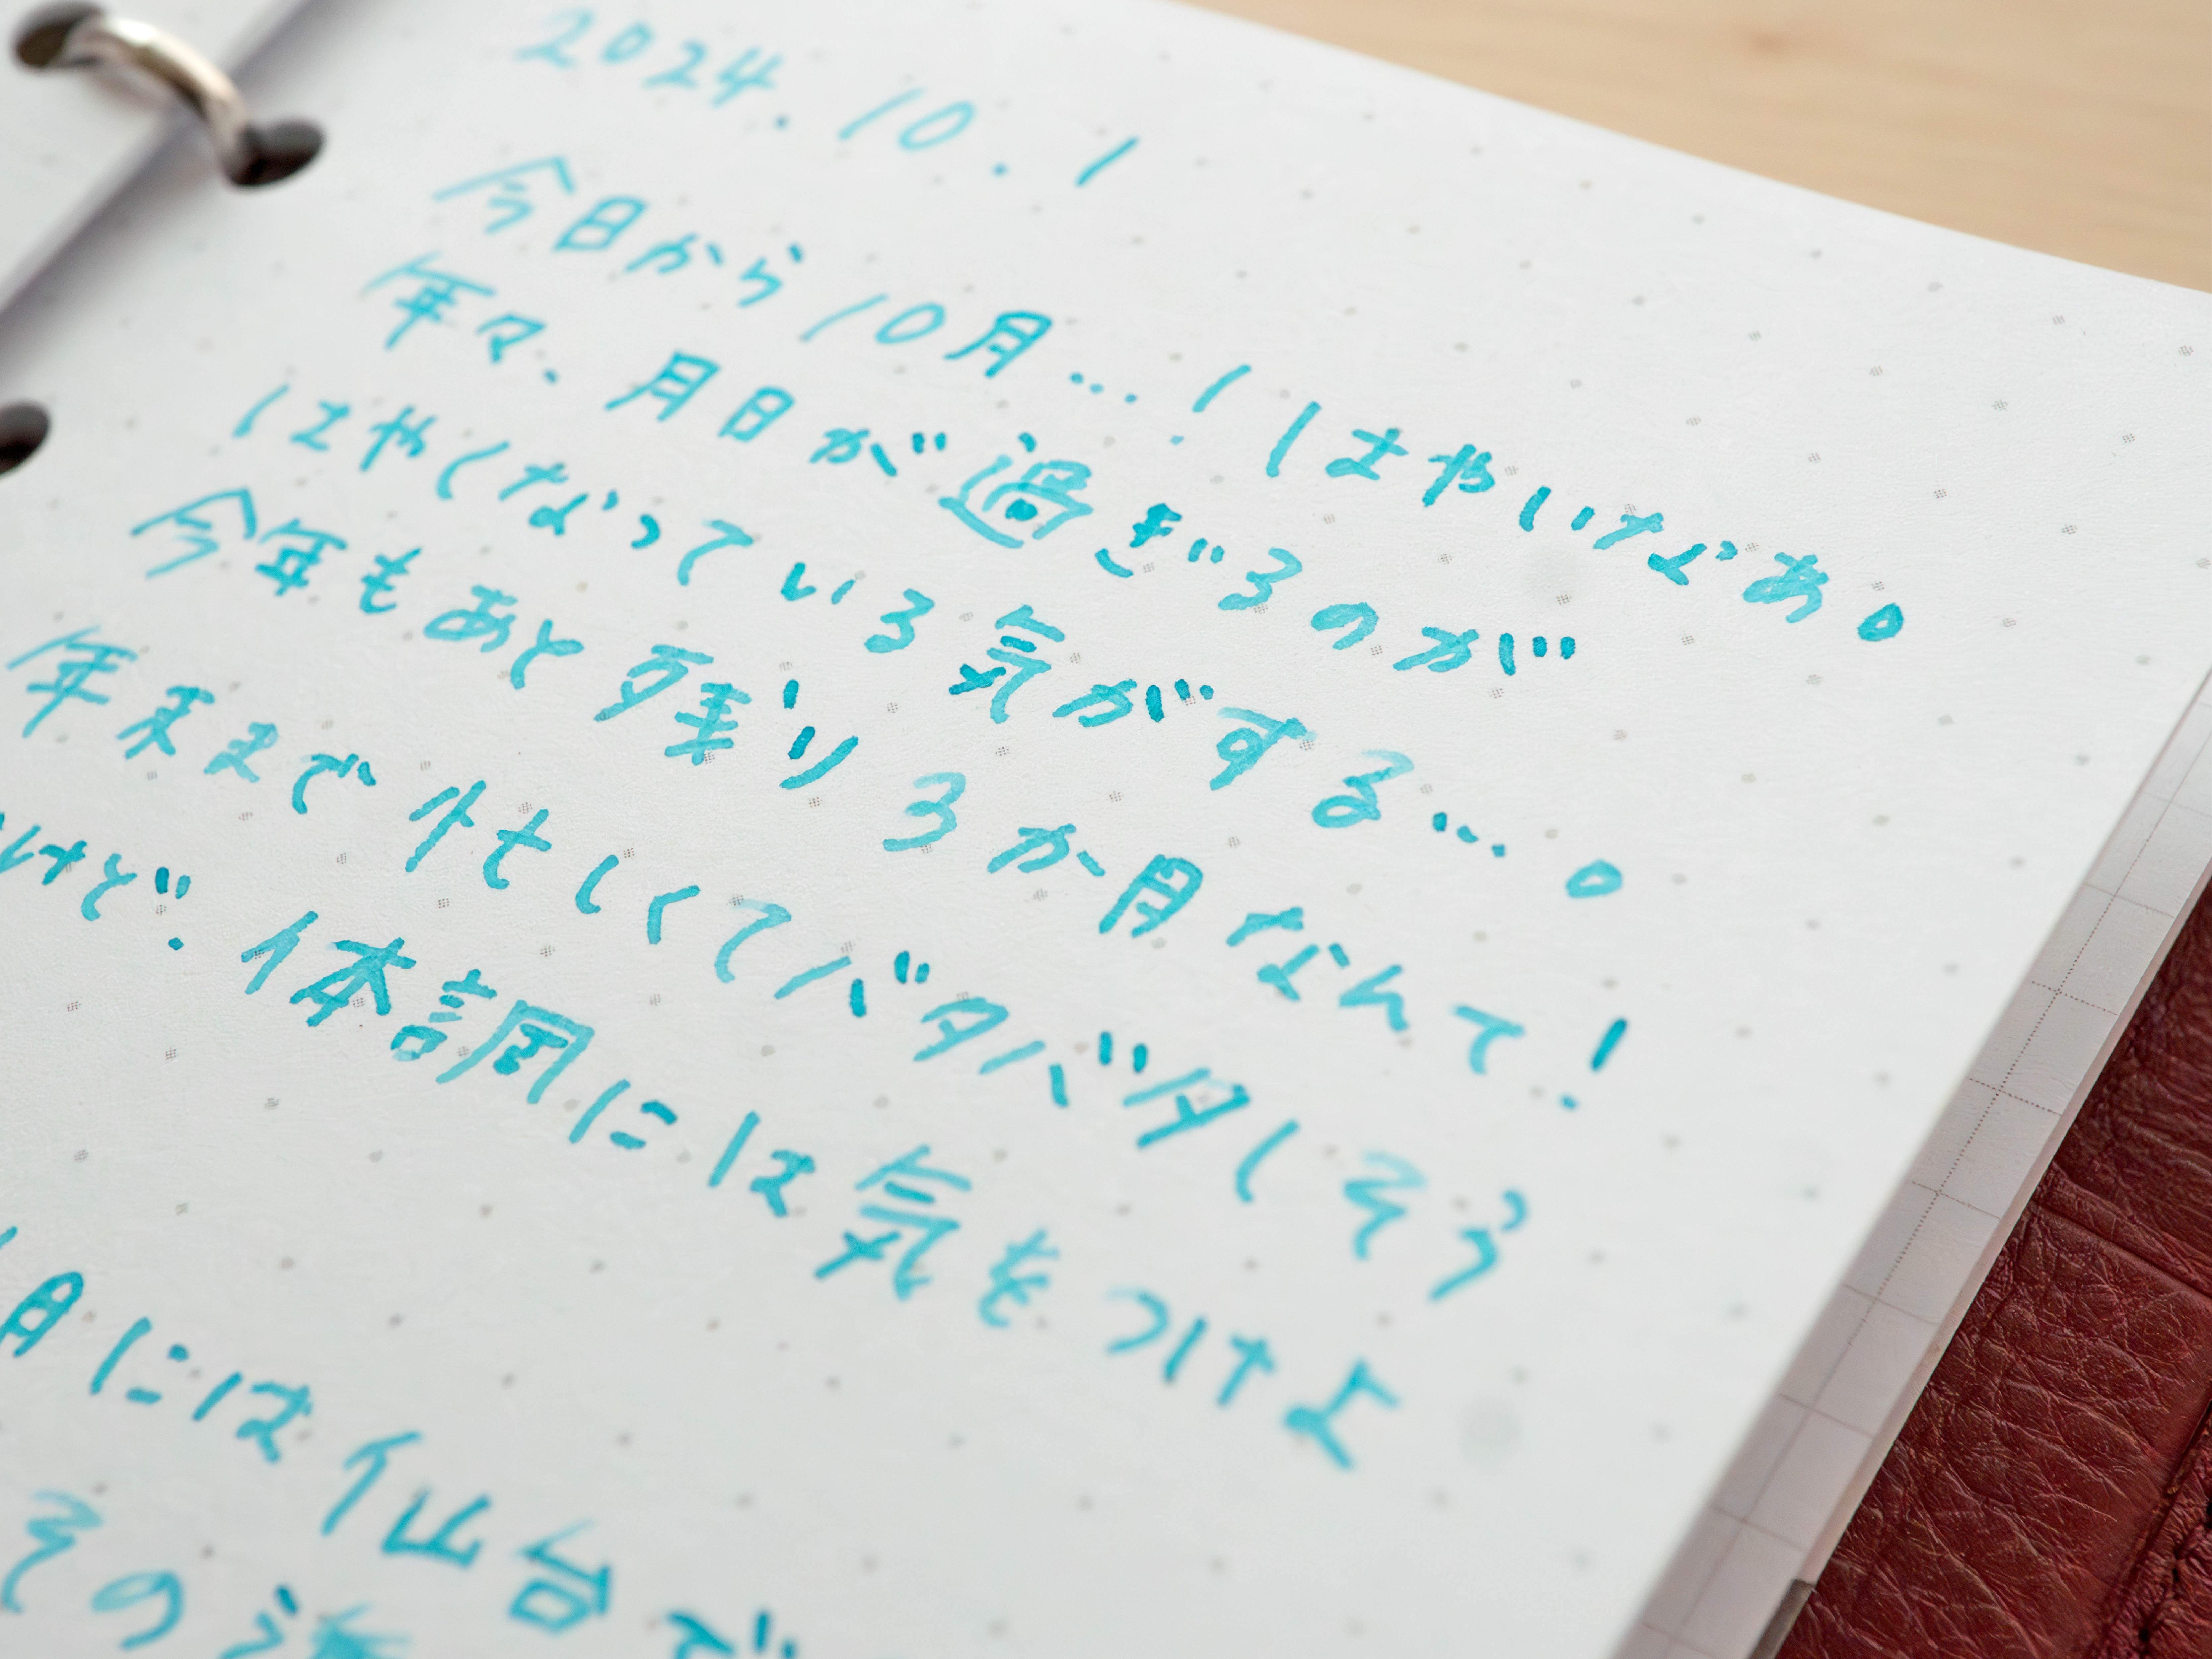 2024.10.1
今日から10月…！はやいなあ。
年々、月日が過ぎるのが
はやくなっている気がする…。
今年もあと残り3か月なんて！
年末まで忙しくてバタバタしそう
けど、体調には気をつけよ
月には仙台で
その